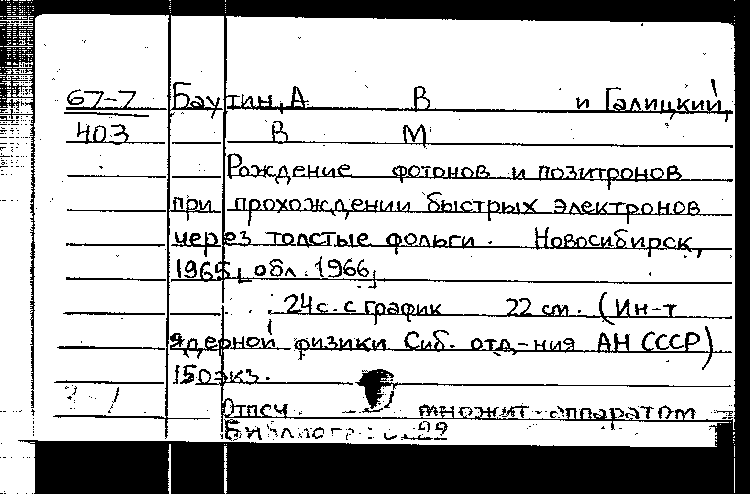 67-7 Баутин, А В и Галицкий,
403 В М
Рождение фотонов и позитронов
при прохождении быстрых электронов
через толстые фольги. Новосибирск,
1965 [обл. 1966]
24 с. с график 22 см. (Ин-т
ядерной физики Сиб. отд-ния АН СССР)
150 экз.
Отпеч. множит. аппаратом
Библиогр.: с. 22